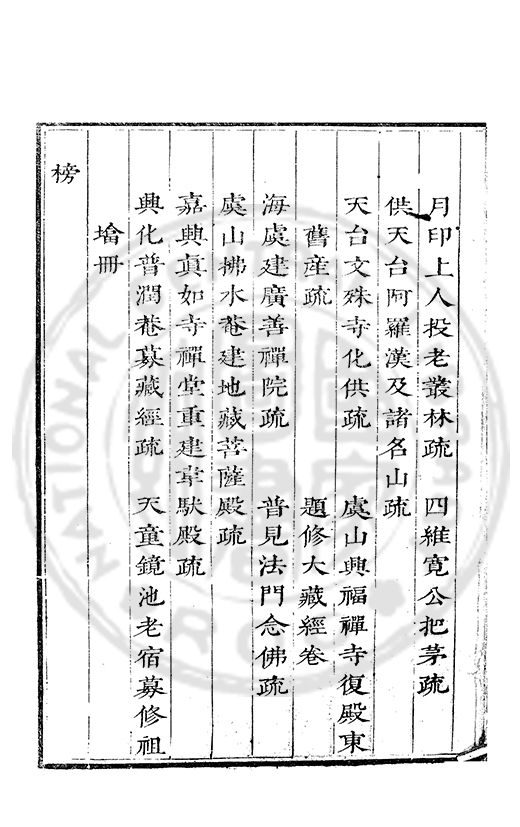 月印上人投老叢林疏　四維寬公把茅疏
供天台阿羅漢及諸名山疏
天台文殊寺化供疏　虞山興福禪寺復殿東
舊産疏　題修大藏經卷
海虞建廣善禪院疏　普見法門念佛疏
虞山拂水菴建地藏菩薩殿疏
嘉興真如寺禪堂重建韋馱殿疏
興化普潤菴募藏經疏　天童鏡池老宿募修祖
墖冊
榜